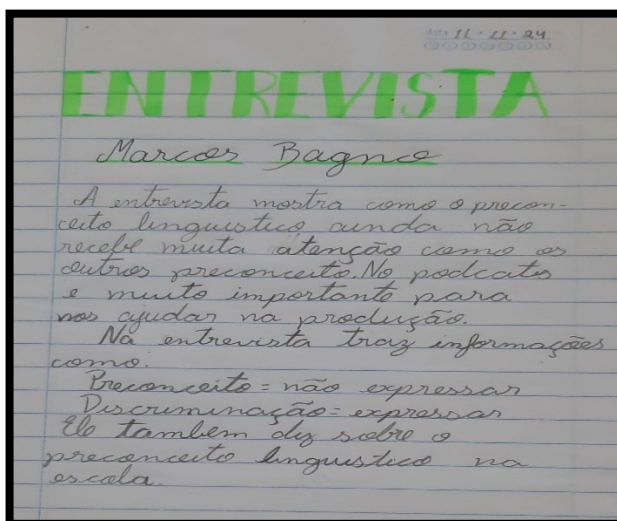 data 11 - 11 - 24
ENTREVISTA
Marcos Bagno
A entrevista mostra como o precon-
ceito linguistico ainda não
recebe muita atenção como os
outros preconceito. No podcats
e muito importante para
nos ajudar na produção.
Na entrevista traz informações
como.
Preconceito = não expressar
Discriminação = expressar
Ele tambem diz sobre o
preconceito linguistico na
escola.